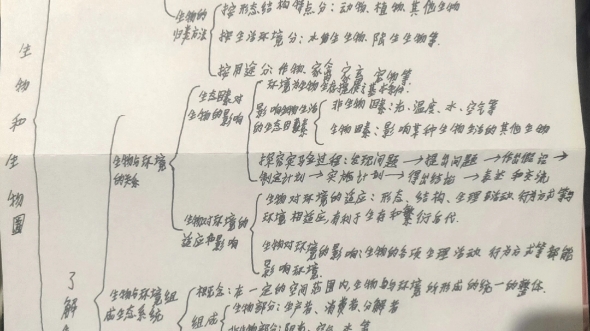 生物和生物圈
生物的
归类方法
按形态结构特点分：动物、植物、其他生物
按生活环境分：水生生物、陆生生物等
按用途分：作物、家禽、家畜、宠物等
生物与环境
的关系
生态因素对
生物的影响
影响生物生活
的生态因素
非生物因素：光、温度、水、空气等
生物因素：影响某种生物生活的其他生物
探究实验过程：发现问题→提出问题→作出假设→
制定计划→实施计划→得出结论→表达和交流
生物对环境的
适应和影响
生物对环境的适应：形态、结构、生理活动、行为方式等与
环境相适应，有利于生存和繁衍后代。
生物对环境的影响：生物的各项生理活动、行为方式等都能
影响环境。
了解
生物与环境组
成生态系统
概念：在一定的空间范围内，生物与环境所形成的统一的整体。
组成
生物部分：生产者、消费者、分解者
非生物部分：阳光、空气、水等